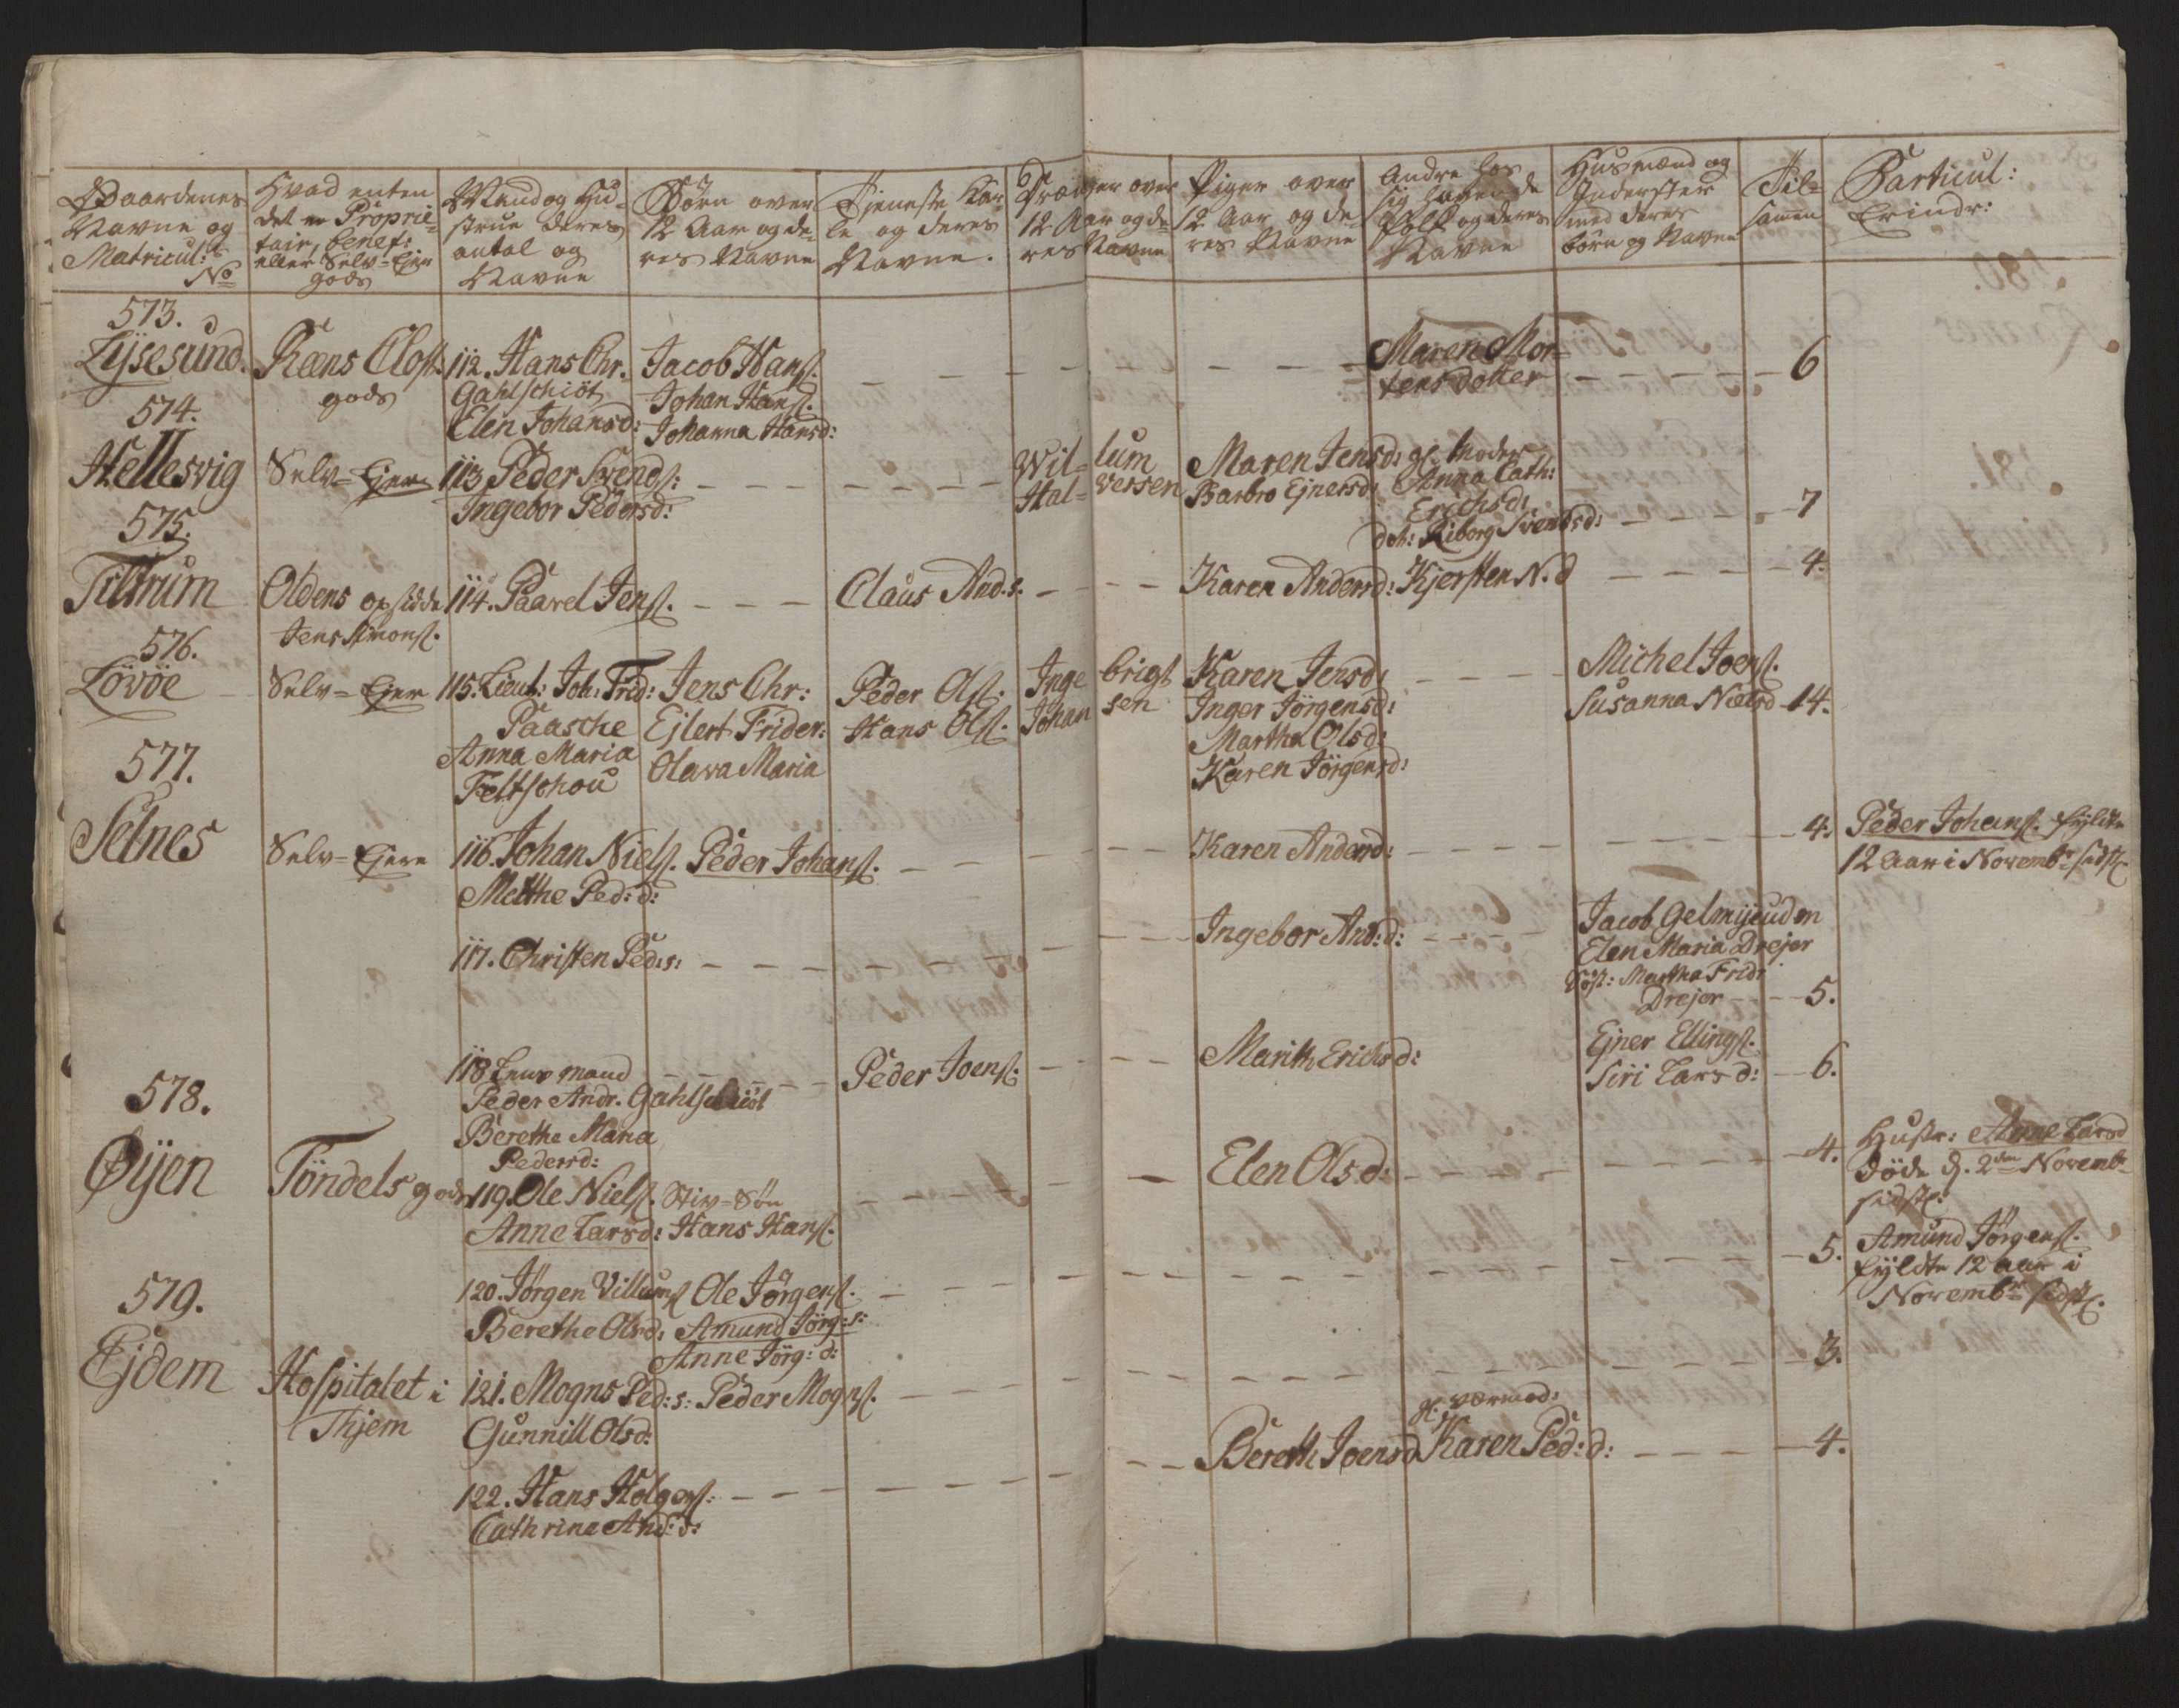 Gaardenes
Navne og
Matricul:
No
Hvad enten
det er Proprie-
tair, benef:
eller Selv-Ejer
gods
Mand og Hu-
strue deres
antal og
Navne
Børn over
12 Aar og de-
res Navne
Tjeneste Kar-
le og deres
Navne.
Drænger over
12 Aar og de-
res Navne
Piger over
12 Aar og de-
res Navne
Andre hos
sig havende
Folk og deres
Navne
Husmænd og
Inderster
med deres
børn og Navne
Til-
samen
Particul:
Erindr:
573.
Lysesund.
Ræns Clost.
gods
112. Hans Chr.
Gahlschiöt
Elen Johansd:
Jacob Hans.
Johan Hans.
Johanna Hansd:
Maren Mor-
tens dotter
6
574.
Hellesvig
Selv-Ejer
113 Peder Svends:
Ingebor Pedersd:
Wil-lum
Hal-versen
Maren Jensd:
Barbro Ejnersd:
gl. Moder
Anna Cath:
Erichsd:
dot: Riborg Svendsd:
7
575.
Tiltrum
Oldens opsidde
Jens Simons.
114. Paavel Jens.
Claus And.s.
Karen Andersd:
Kjersten N.d
4.
576.
Lövöe
Selv-Ejer
115. Lieut: Joh: Frid:
Paasche
Anna Maria
Feltschou
Jens Chr:
Ejlert Frider:
Olava Maria
Peder Ols.
Hans Ols.
Inge brigt
Johan sen
Karen Jensd:
Inger Jörgensd:
Martha Olsd:
Karen Jörgensd:
Michel Joens.
Susanna Nielsd
14.
577.
Selnes
Selv-Ejere
116. Johan Niels.
Metthe Ped:d:
Peder Johans.
Karen Andersd:
4.
Peder Johans. fyldte
12 Aar i Novembr. sidst.
117. Christen Ped:s:
Ingebor And:d:
Jacob Gelmyeuden
Elen Maria Drejer
Söst: Martha Frid:
Drejer
5.
118 Lens mand
Peder Andr. Gahlschiöt
Berethe Maria
Pedersd:
Peder Joens.
Marith Erichsd:
Ejner Ellings.
Siri Larsd:
6.
578.
Øijen
Töndels gods
119. Ole Niels.
Anne Larsd:
Stiv-Søn
Hans Hans.
Elen Olsd:
4.
Hustr: Anne Larsd
døde d. 2den Novembr
sidst.
120. Jörgen Villums
Berethe Olsd:
Ole Jörgens.
Amund Jörg:s:
Anne Jörg:d:
5.
Amund Jörgens.
fyldte 12 Aar i
Novembr sidst.
579.
Ejdem
Hospitalet i
Thjem
121. Mogns Ped:s:
Gunnill Olsd:
Peder Mogns.
3.
122. Hans Holgers:
Cathrina And:d:
Bereth Joensd
gl. værmod:
Karen Ped:d:
4.